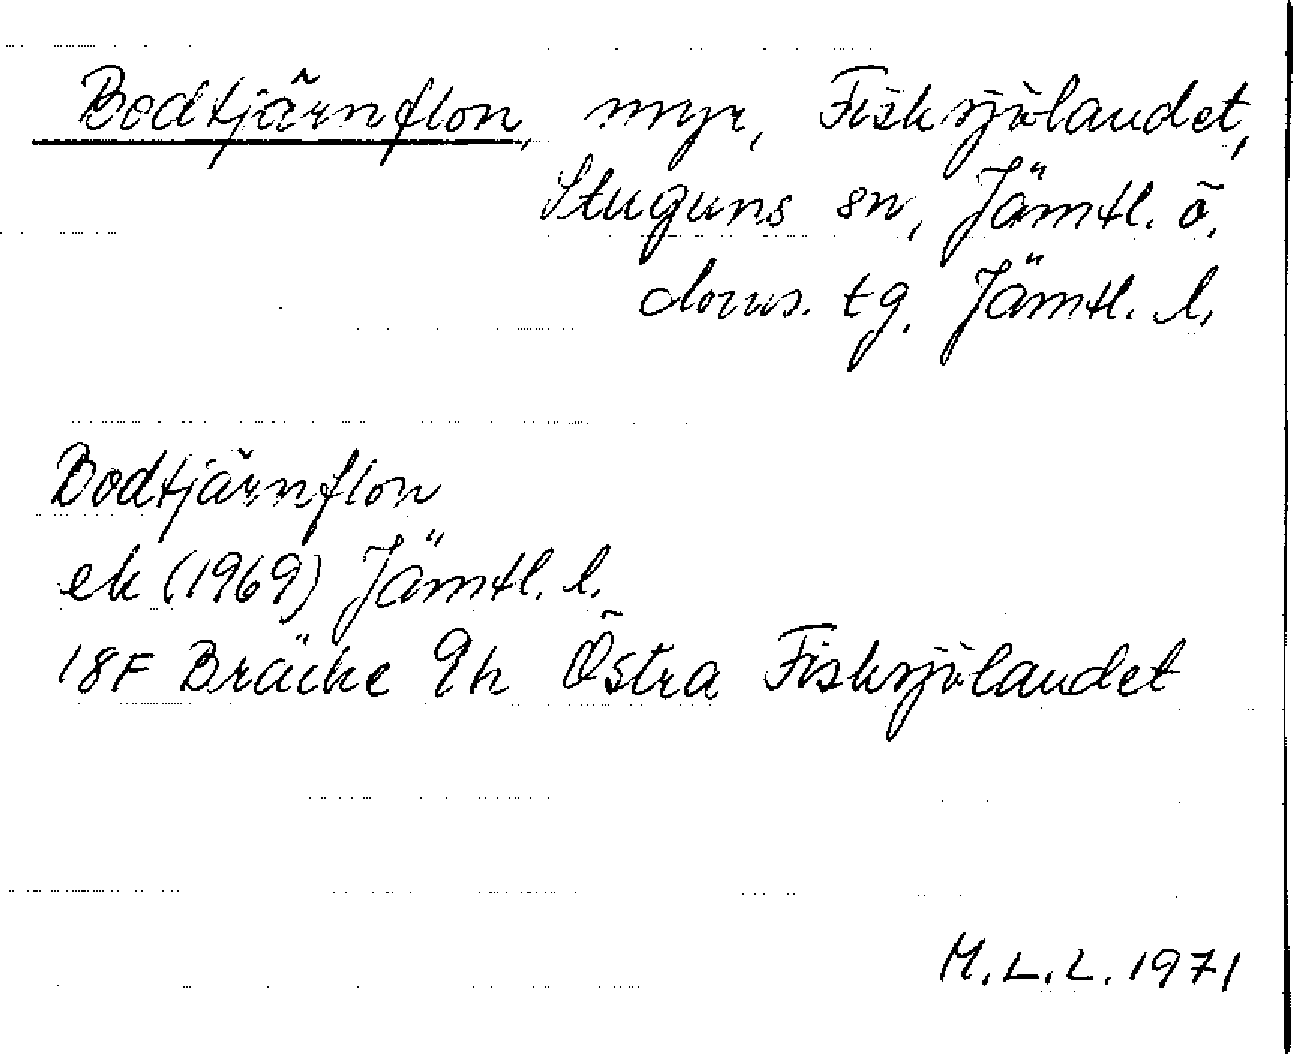 Bodtjärnflon, myr, Fisksjölandet,
Stuguns sn, Jämtl. ö.
doms. tg. Jämtl. l.
Bodtjärnflon
ek (1969) Jämtl. l.
18F Bräcke 9h Östra Fisksjölandet
M.L.L. 1971